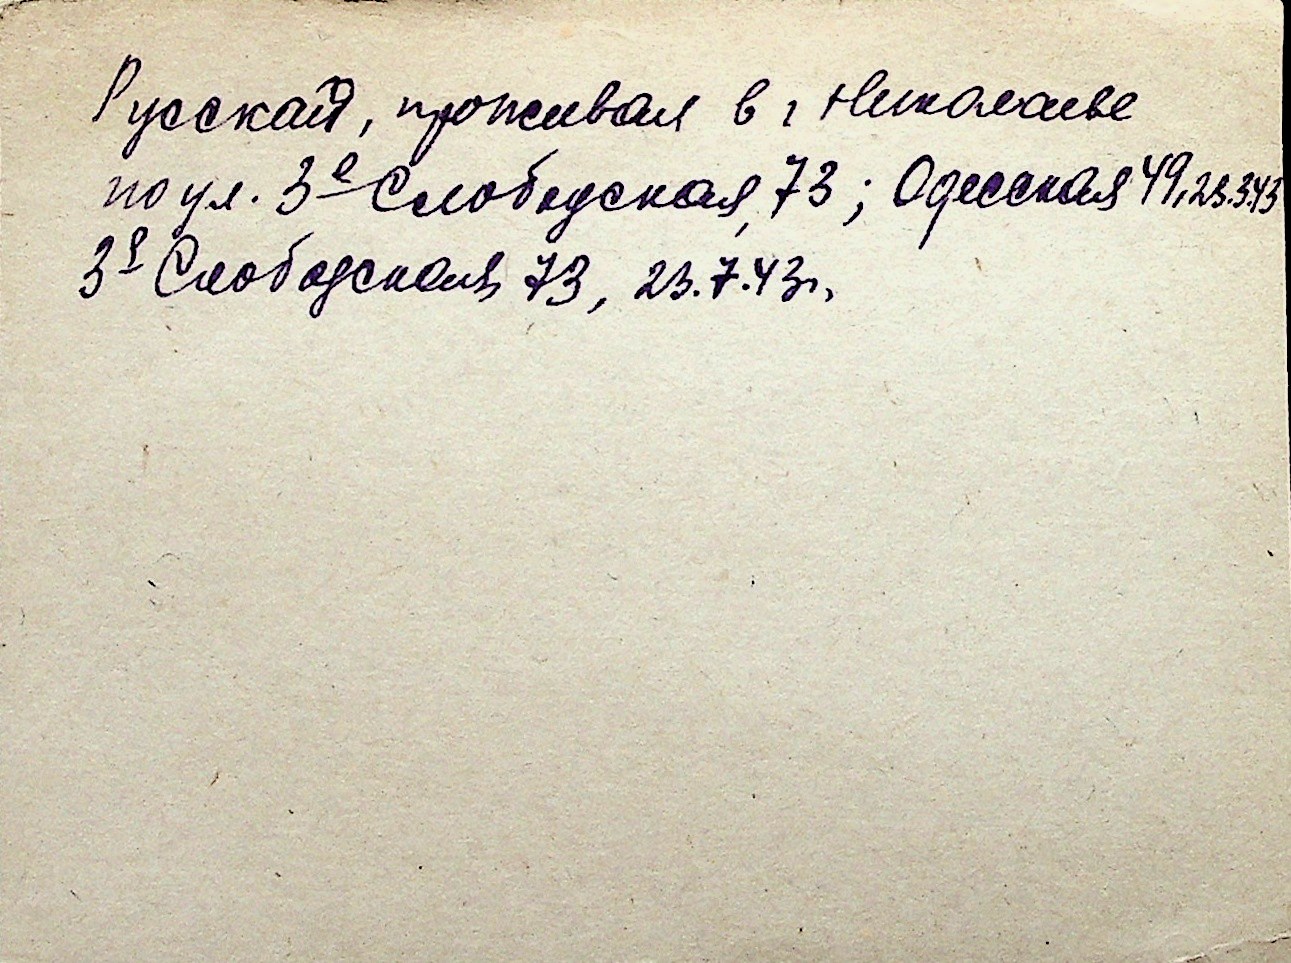 Русский, проживал в г Николаеве
по ул. 3е Слободская, 73; Одесская 49, 23.3.43
3я Слободская 73, 23.7.43г.